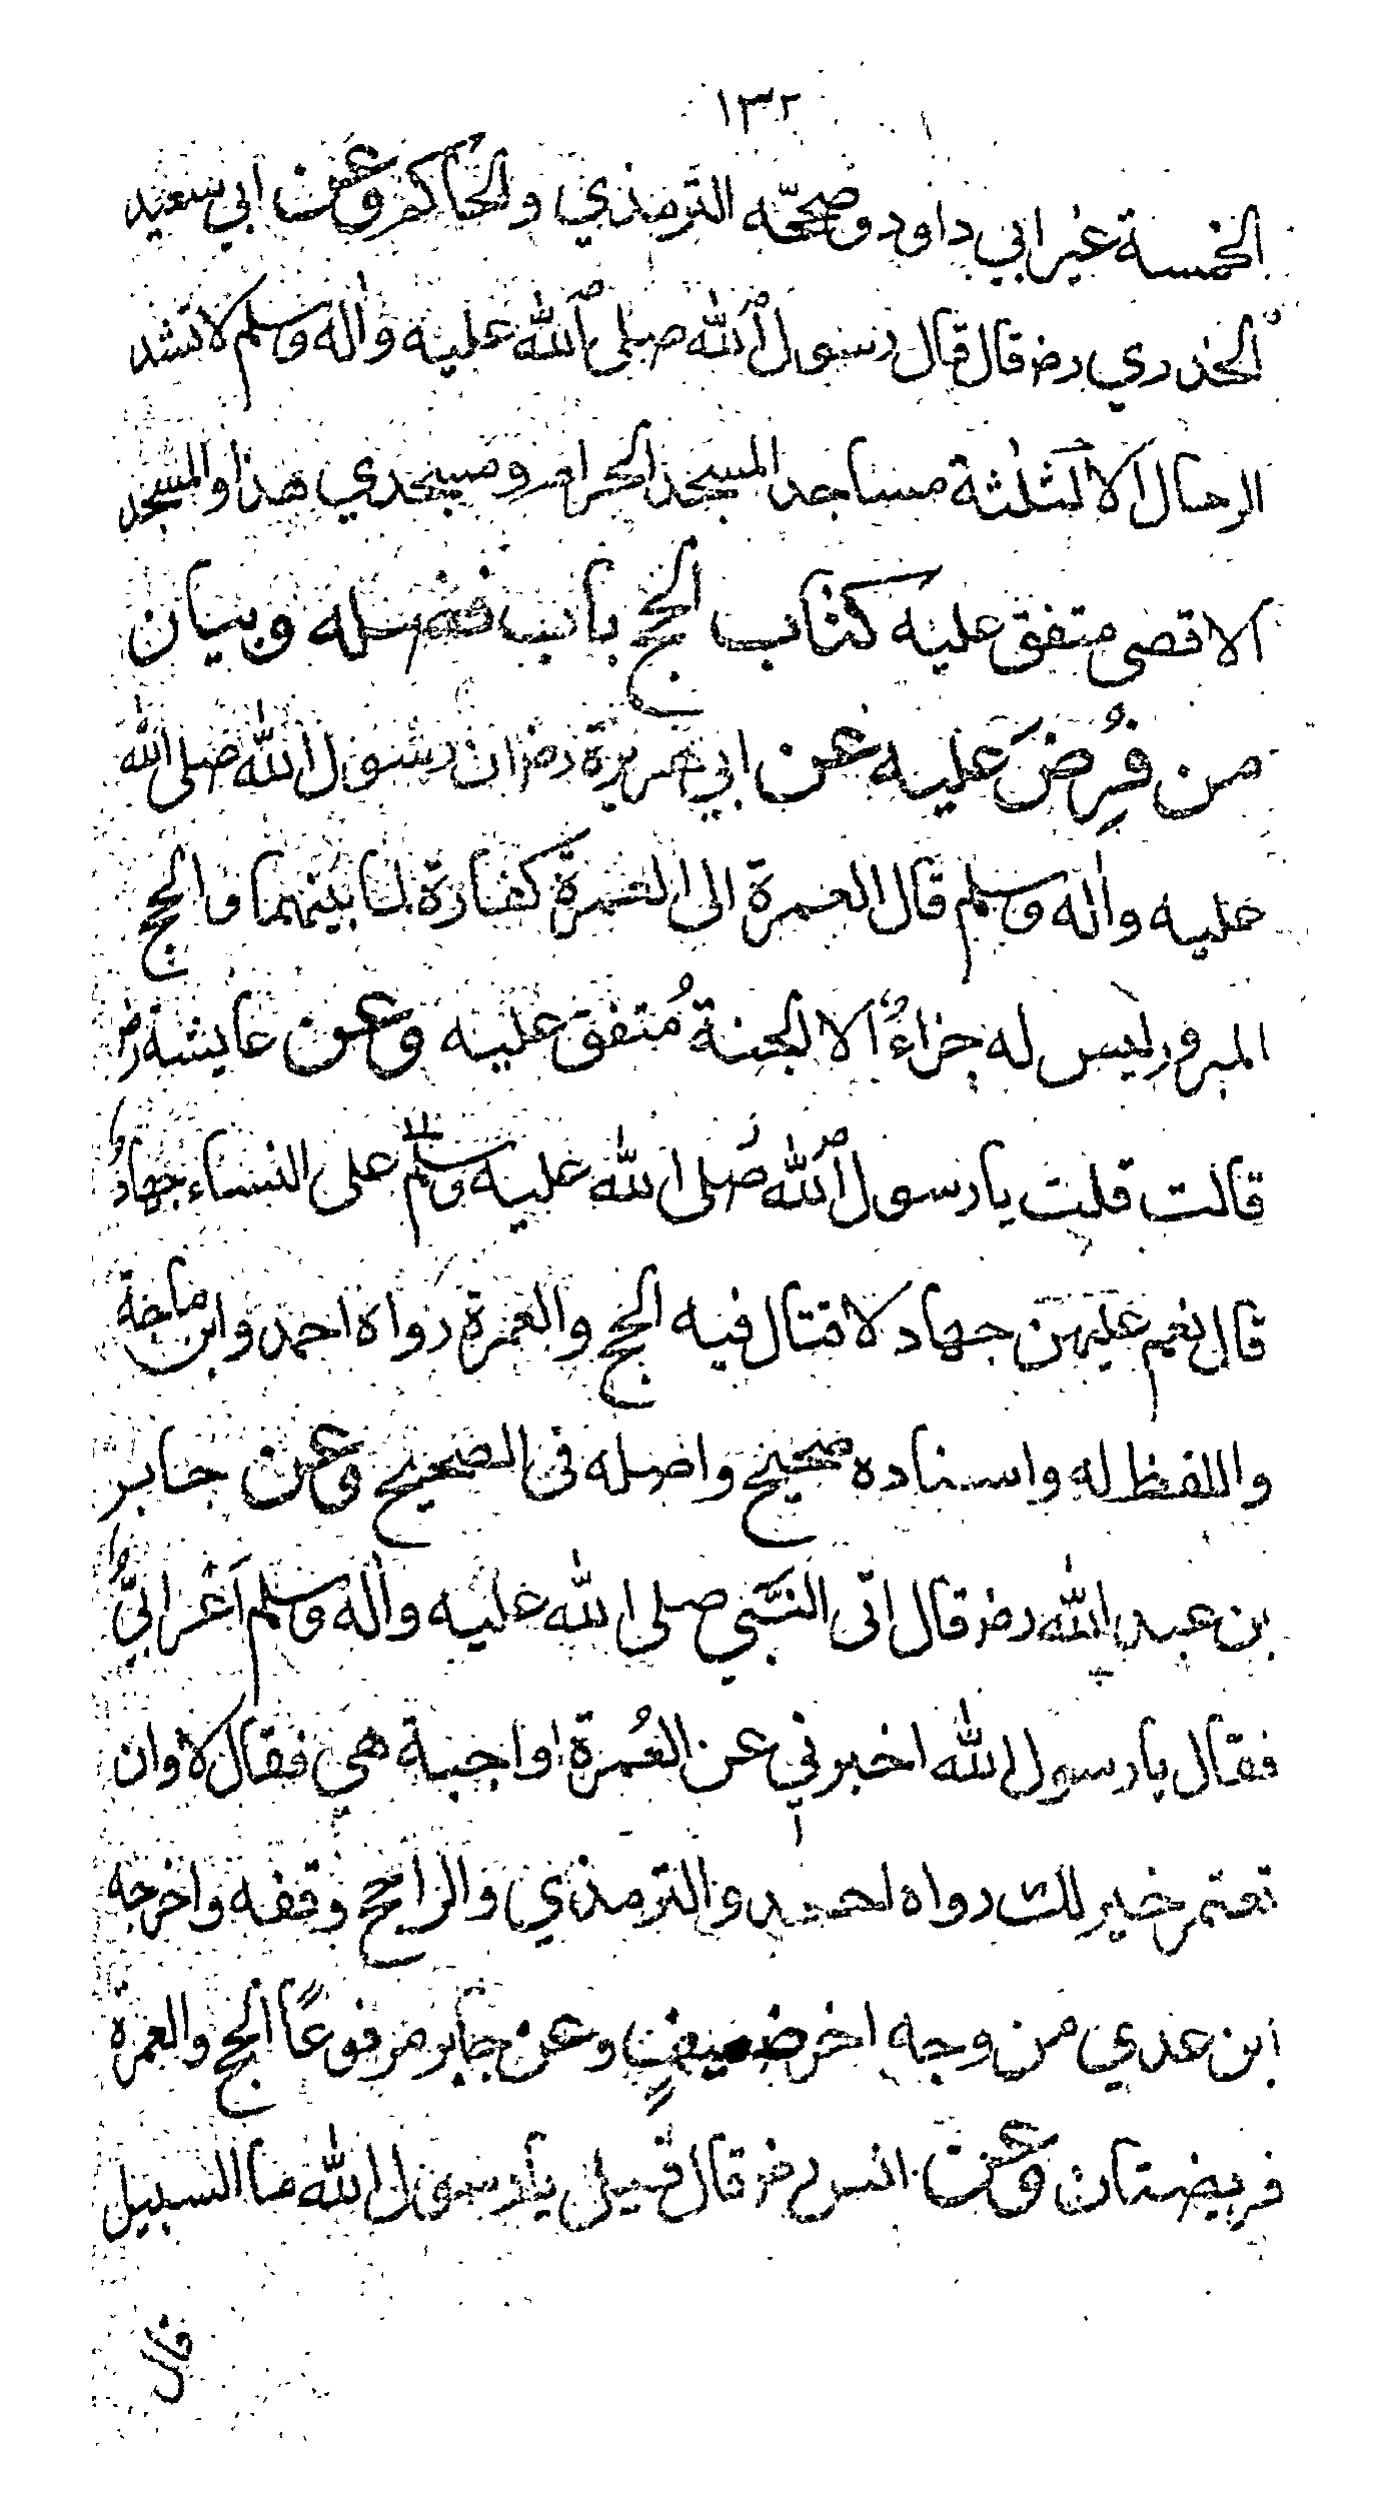 ١٣٢
الخمسة غير ابي داود وصححّه الترمذي والحاكم وعن ابي سعيد
الخدري رض قال قال رسول الله صلى الله عليه واله وسلم لا تشد
الرحال الا لثلثة مساجد المسجد الحرام ومسجدي هذا والمسجد
الاقصى متفق عليه كتاب الحج باب فضله وبيان
من فُرِضَ عليه عن ابي هريرة رض ان رسول الله صلى الله
عليه واله وسلم قال العمرة الى العمرة كفارة لما بينهما والحج
المبرور ليس له جزاءٌ الا الجنة مُتفق عليه وعن عايشة رض
قالت قلت يا رسول الله صلى الله عليه وسلم على النساء جهاد
قال نعم عليهن جهاد لا قتال فيه الحج والعمرة رواه احمد وابن ماجة
واللفظ له واسناده صحيح واصله في الصحيح وعن جابر
بن عبد الله رض قال اتى النبي صلى الله عليه واله وسلم اَعْرابيٌّ
فقال يا رسول الله اخبرني عن العُمرة اواجبة هي فقال لا وان
تعتمر خير لك رواه احمد والترمذي والراجح وقفه واخرجه
ابن عدي من وجه اخر ضعيفٍ وعن جابر مرفوعًا الحج والعمرة
فريضتان وعن انس رض قال قيل يا رسول الله ما السبيل
قال